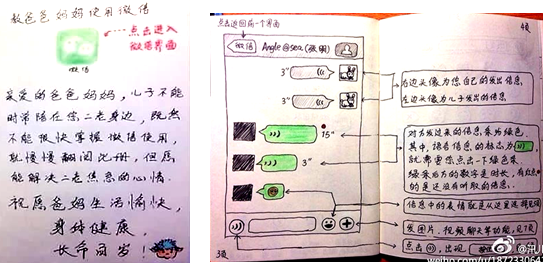 教爸爸妈妈使用微信
点击进入
微信界面
微信
亲爱的爸爸妈妈，儿子不能
时常陪在您二老身边，既然
不能很快掌握微信使用，
就慢慢翻阅此册，但愿
能解决二老焦急的心情。
祝愿爸妈生活愉快，
身体健康，
长命百岁！
点击返回前一个界面
微信
Angle@sea(张明)
3"
3"
15"
3"
3页
4页
右边头像为您自己的发出信息，
左边头像为儿子发出的信息。
对方发过来的信息条为绿色，
其中，语音信息的标志为
就需要您点击一下绿色条，
绿条后方的数字是时长，有红点
的是还没有听取的信息。
信息中的表情就是从这里选择
发图片、视频聊天等功能，见7页
点击 ，出现
weibo.com/u/187233064